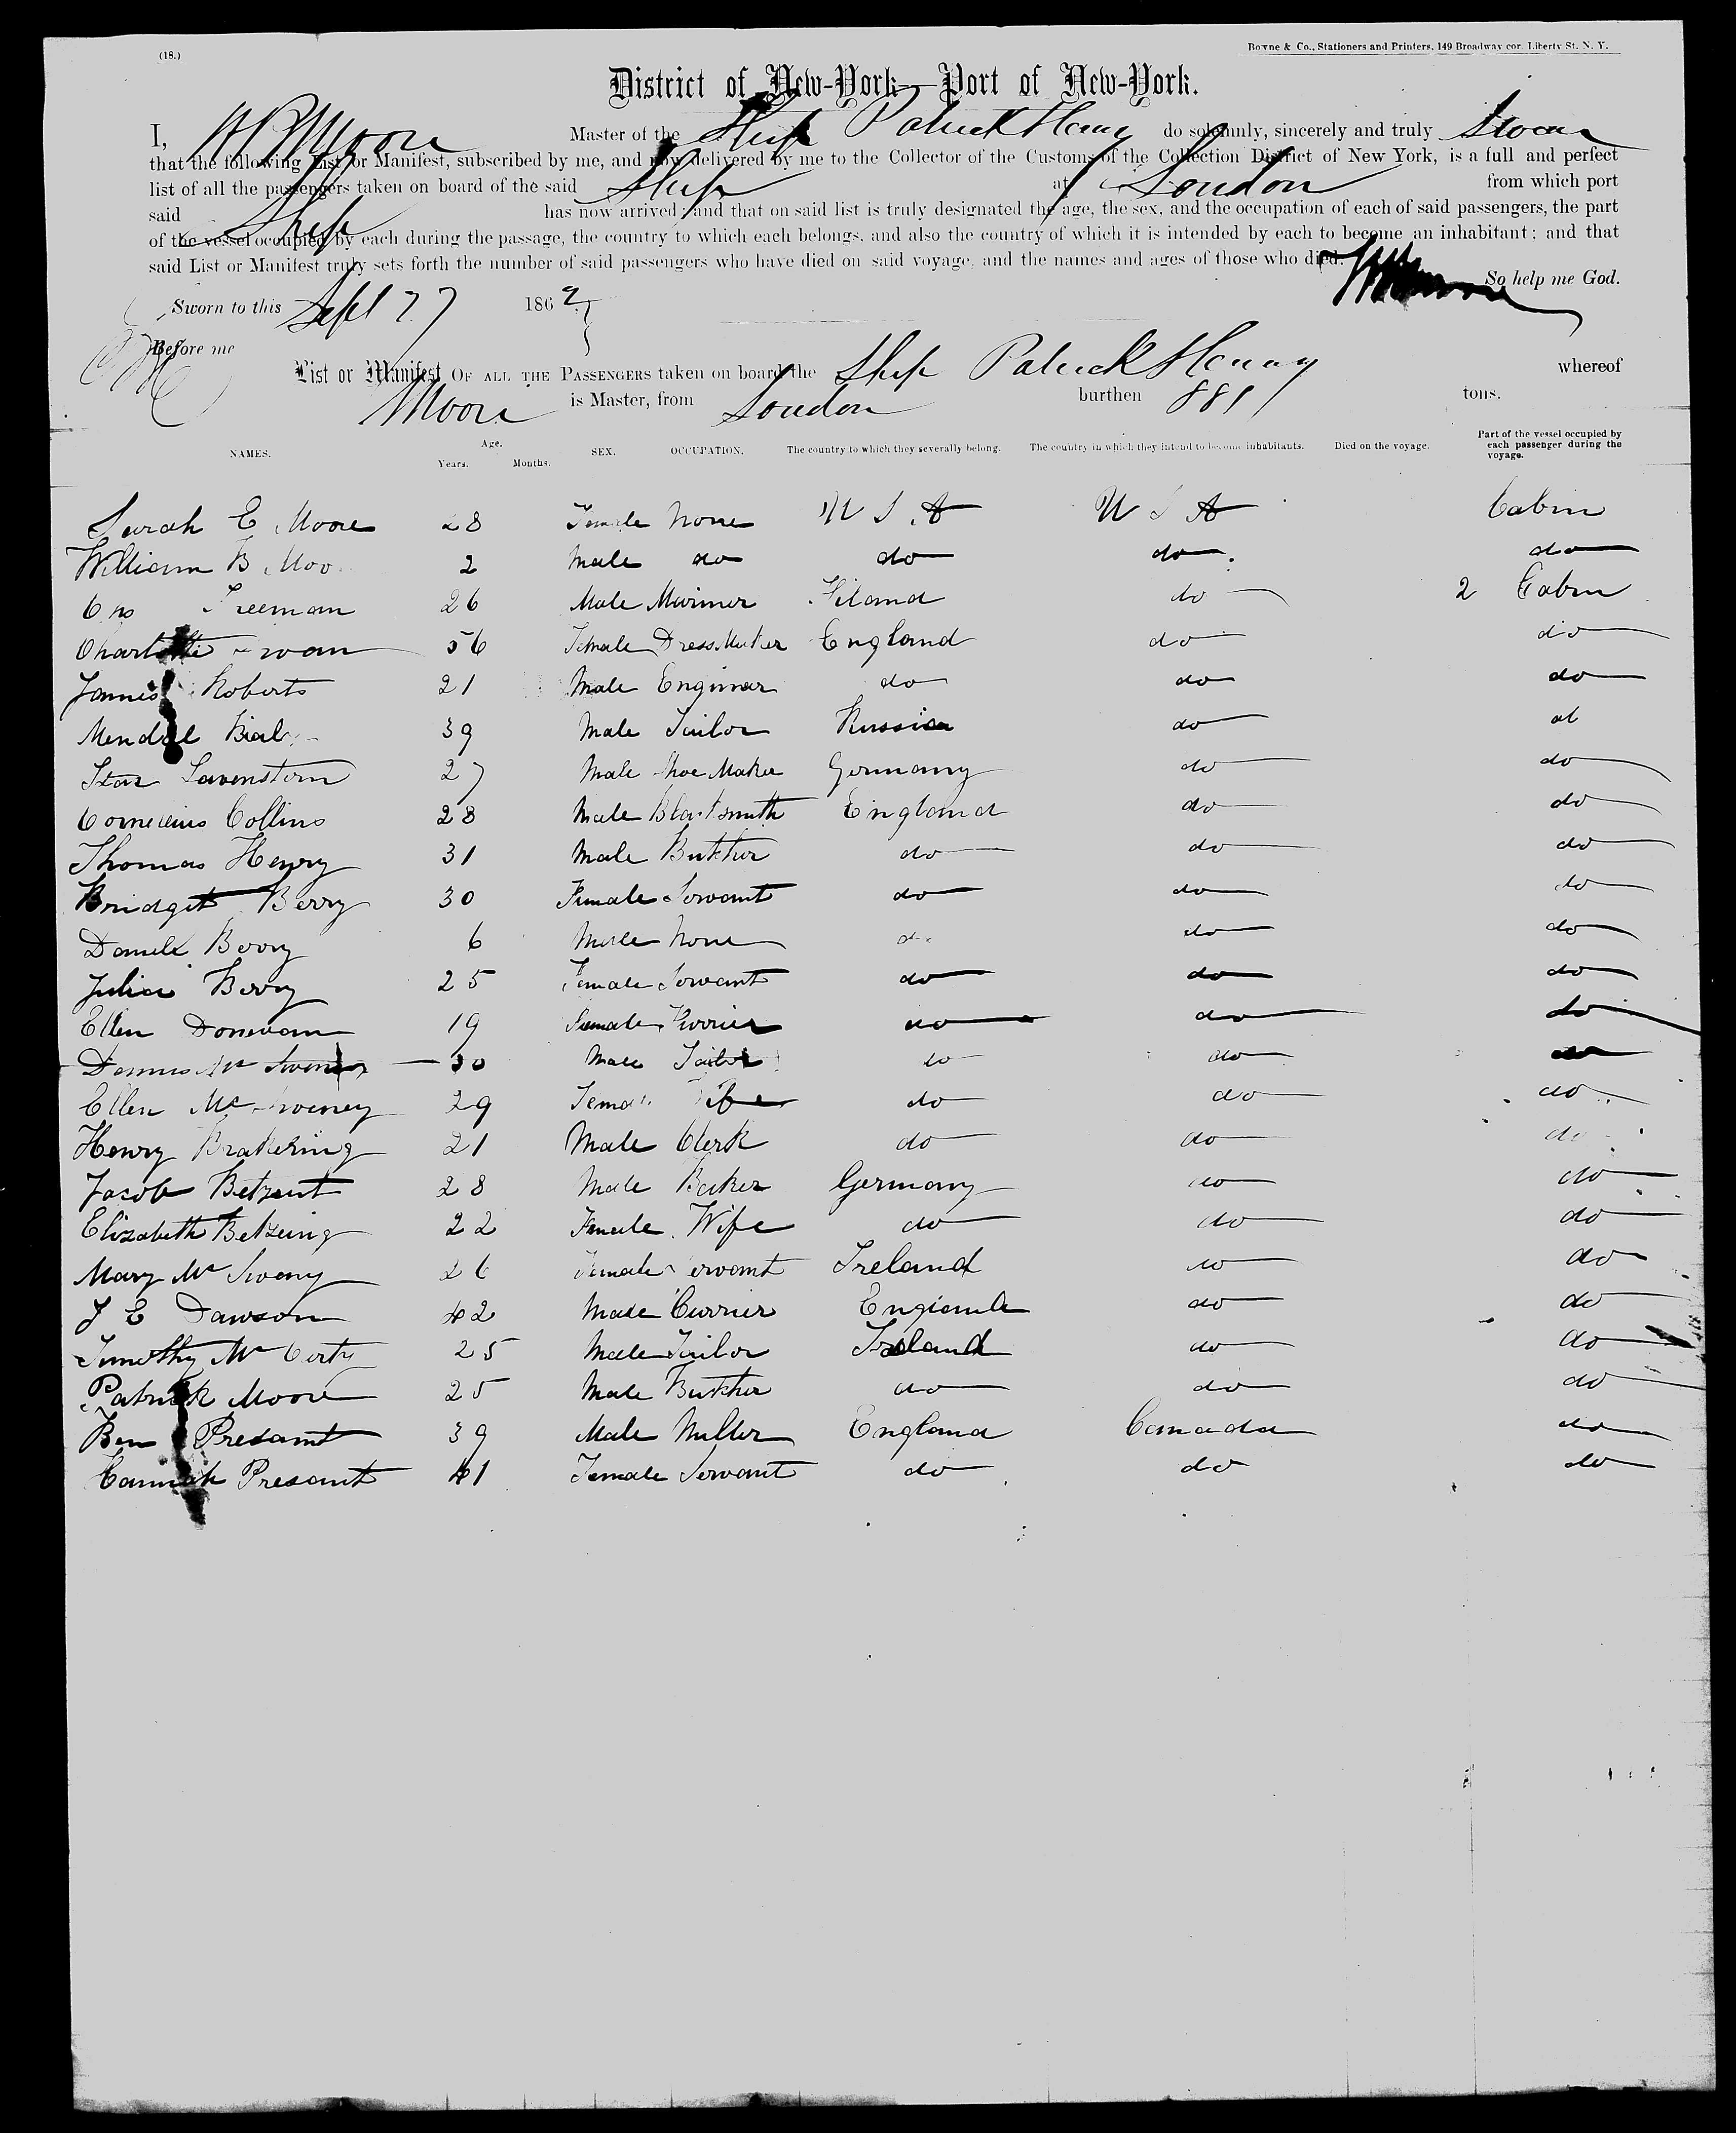 (18.)
Bowne & Co., Stationers and Printers, 149 Broadway cor. Liberty St. N. Y.
District of New-York—Port of New-York.
I, Moore Master of the Ship Patrick Henry do solemnly, sincerely and truly Swear
that the following List or Manifest, subscribed by me, and now delivered by me to the Collector of the Customs of the Collection District of New York, is a full and perfect
list of all the passengers taken on board of the said Ship at London from which port
said Ship has now arrived; and that on said list is truly designated the age, the sex, and the occupation of each of said passengers, the part
of the vessel occupied by each during the passage, the country to which each belongs, and also the country of which it is intended by each to become an inhabitant; and that
said List or Manifest truly sets forth the number of said passengers who have died on said voyage, and the names and ages of those who died.
So help me God.
Sworn to this Sept 27 1862
Before me
List or Manifest OF ALL THE PASSENGERS taken on board the Ship Patrick Henry whereof
Moore is Master, from London burthen 881 tons.
NAMES. Age. Years. Months. SEX. OCCUPATION. The country to which they severally belong. The country in which they intend to become inhabitants. Died on the voyage. Part of the vessel occupied by each passenger during the voyage.
Sarah E Moore 28 Female None U S A U S A Cabin
William B Moo 2 Male do do do do
Freeman 26 Male Mariner do 2 Cabin
56 Female Dress Maker England do do
James Roberts 21 Male Engineer do do do
Mendel 39 Male Tailor Russia do
27 Male Shoe Maker Germany do do
Cornelius Collins 28 Male Blacksmith England do do
Thomas Henry 31 Male Butcher do do do
Bridget Berry 30 Female Servant do do do
Daniel Berry 6 Male None do do do
Julia Berry 25 Female Servant do do do
Ellen Donevan 19 Female Furrier do do do
Dennis Mc 30 Male Tailor do do do
Ellen Mc Sweeney 29 Female Wife do do do
Henry Brakering 21 Male Clerk do do do
Jacob 28 Male Baker Germany do do
Elizabeth Betzeing 22 Female Wife do do do
Mary Mc Sweny 26 Female Servant Ireland do do
J E Dawson 42 Male Currier England do do
Timothy Mc Certy 25 Male Tailor Ireland do do
Patrick Moore 25 Male Butcher do do do
Ben Presant 39 Male Miller England Canada do
Hannah Presant 41 Female Servant do do do